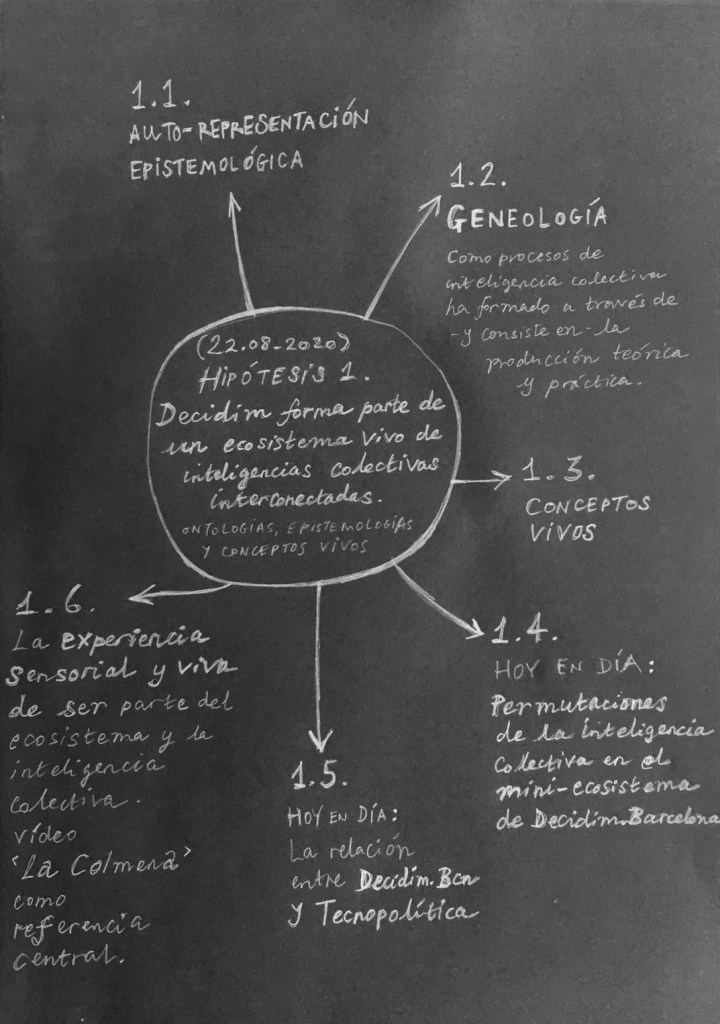 1.1.
AUTO-REPRESENTACIÓN
EPISTEMOLÓGICA
1.2.
GENEOLOGÍA
Como procesos de
inteligencia colectiva
ha formado a través de
-y consiste en- la
producción teórica
y práctica.
(22.08.2020)
HIPÓTESIS 1.
Decidim forma parte de
un ecosistema vivo de
inteligencias colectivas
interconectadas.
ONTOLOGÍAS, EPISTEMOLOGÍAS
Y CONCEPTOS VIVOS
1.3.
CONCEPTOS
VIVOS
1.4.
HOY EN DÍA:
Permutaciones
de la inteligencia
Colectiva en el
mini-ecosistema
de Decidim.Barcelona
1.5.
HOY EN DÍA:
La relación
entre Decidim.Bcn
y Tecnopolítica
1.6.
La experiencia
sensorial y viva
de ser parte del
ecosistema y la
inteligencia
colectiva.
vídeo
'La Colmena'
como
referencia
central.